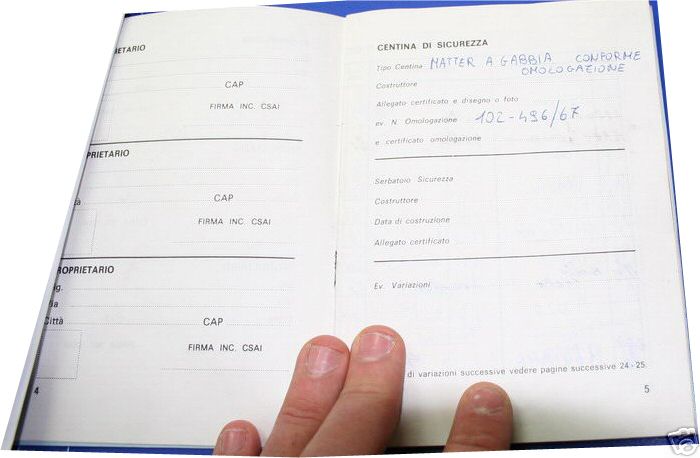 IETARIO
CAP
FIRMA INC. CSAI
PRIETARIO
CAP
ttà
FIRMA INC. CSAI
ROPRIETARIO
g.
ia
Città
CAP
FIRMA INC. CSAI
4
CENTINA DI SICUREZZA
Tipo Centina MATTER A GABBIA CONFORME
OMOLOGAZIONE
Costruttore
Allegato certificato e disegno o foto
ev. N. Omologazione 102-496/67
e certificato omologazione
Serbatoio Sicurezza
Costruttore
Data di costruzione
Allegato certificato
Ev. Variazioni
di variazioni successive vedere pagine successive 24-25.
5